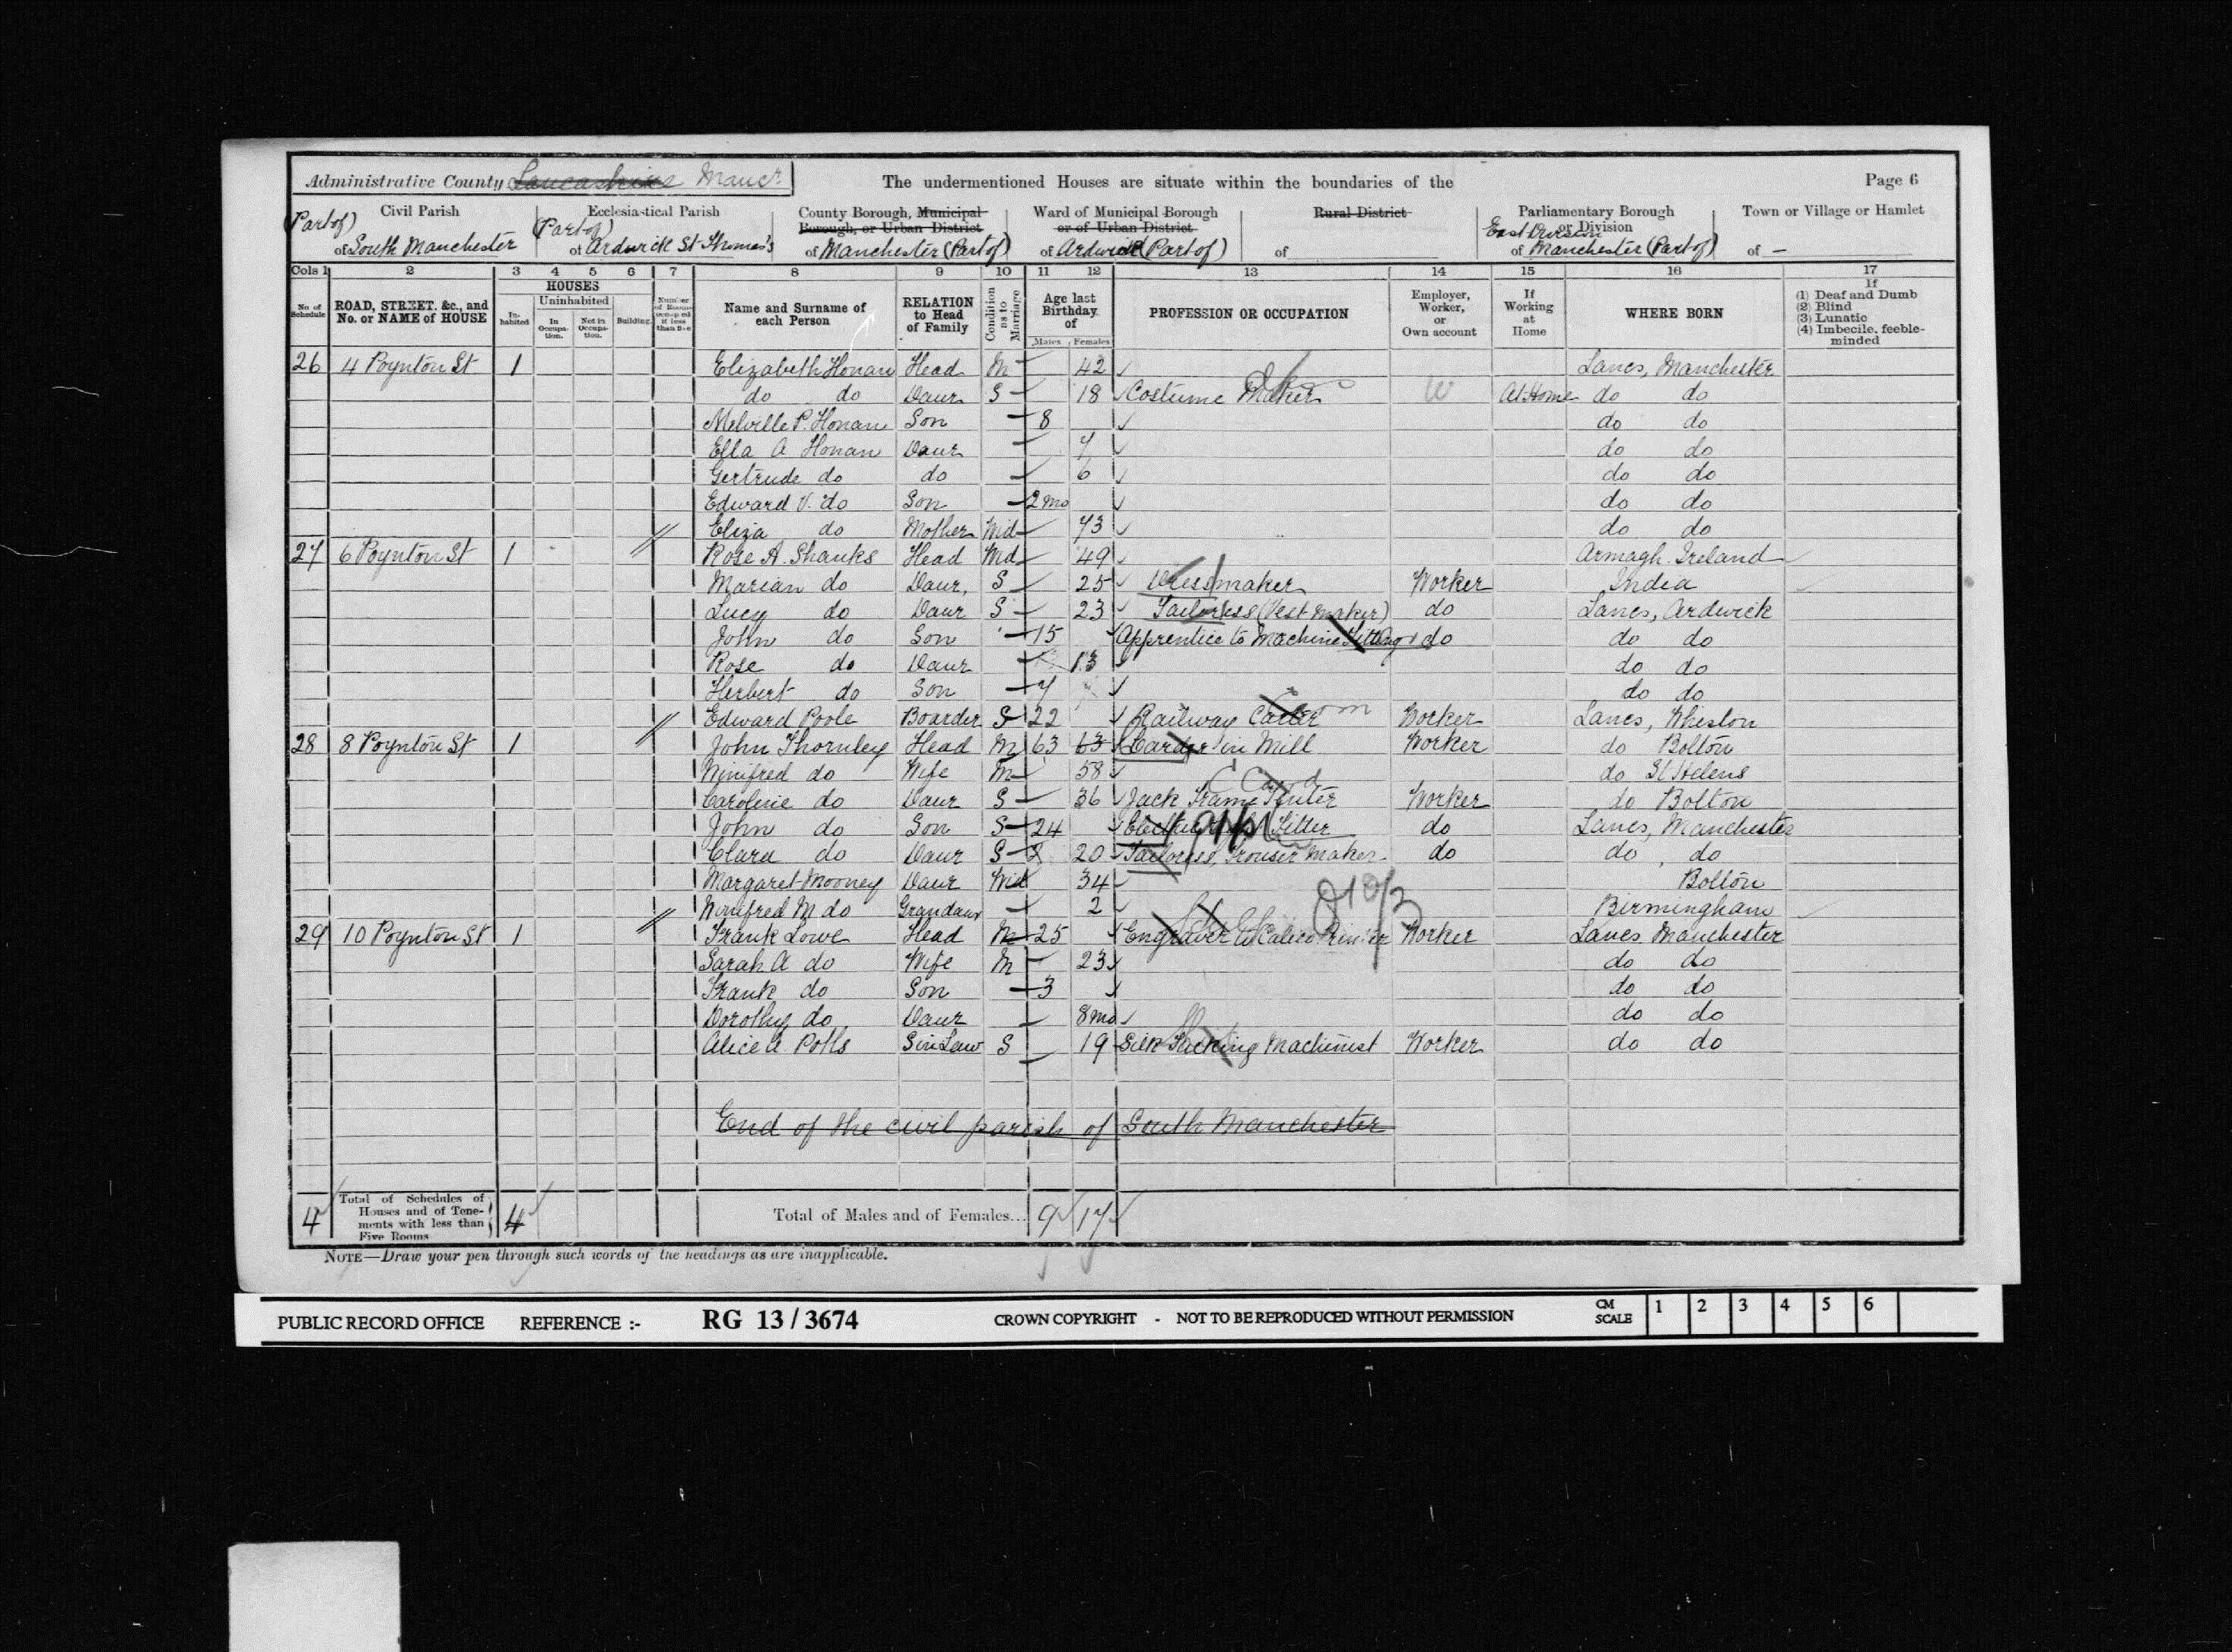 Administrative County Lancashire Mancr.
The undermentioned Houses are situate within the boundaries of the
Page 6
(Part of) Civil Parish of South Manchester
(Part of) Ecclesiastical Parish of Ardwick St Thomas's
County Borough, Municipal Borough, or Urban District of Manchester (Part of)
Ward of Municipal Borough or of Urban District of Ardwick (Part of)
Rural District of
Parliamentary Borough or Division East Division of Manchester (Part of)
Town or Village or Hamlet of —
Cols 1 2 3 4 5 6 7 8 9 10 11 12 13 14 15 16 17
No. of Schedule
ROAD, STREET, &c., and No. or NAME of HOUSE
HOUSES
Inhabited
Uninhabited
In Occupation.
Not in Occupation.
Building.
Number of Rooms occupied if less than five
Name and Surname of each Person
RELATION to Head of Family
Condition as to Marriage
Age last Birthday of
Males Females
PROFESSION OR OCCUPATION
Employer, Worker, or Own account
If Working at Home
WHERE BORN
If
(1) Deaf and Dumb
(2) Blind
(3) Lunatic
(4) Imbecile, feeble-minded
26 4 Poynton St 1 Elizabeth Honan Head M 42 Lancs, Manchester
do do Daur S 18 Costume Maker W At Home do do
Melville P. Honan Son 8 do do
Ella A Honan Daur 7 do do
Gertrude do do 6 do do
Edward V. do Son 2 mo do do
Eliza do Mother Wid 73 do do
27 6 Poynton St 1 Rose A. Shanks Head Wid 49 Armagh. Ireland
Marian do Daur, S 25 Dressmaker Worker India
Lucy do Daur S 23 Tailoress (Vest Maker) do Lancs, Ardwick
John do Son 15 Apprentice to Machine Fitting do do do
Rose do Daur 13 do do
Herbert do Son 7 do do
Edward Poole Boarder S 22 Railway Carter Worker Lancs, Whiston
28 8 Poynton St 1 John Thornley Head M 63 63 Carder in Mill Worker do Bolton
Winifred do Wife M 58 do St Helens
Caroline do Daur S 36 Jack Frame Tenter Worker do Bolton
John do Son S 24 Fitter do Lancs, Manchester
Clara do Daur S 20 Tailoress, Trouser Maker do do do
Margaret Mooney Daur Wid 34 Bolton
Winifred M do Grandaur 2 Birmingham
29 10 Poynton St 1 Frank Lowe Head M 25 Engraver to Calico Printer Worker Lancs Manchester
Sarah A do Wife M 23 do do
Frank do Son 3 do do
Dorothy do Daur 8 mo do do
Alice A. Potts Sin Law S 19 Silk Packing Machinist Worker do do
End of the civil parish of South Manchester
4 Total of Schedules of Houses and of Tenements with less than Five Rooms 4 Total of Males and of Females... 9 17
NOTE—Draw your pen through such words of the headings as are inapplicable.
PUBLIC RECORD OFFICE REFERENCE :- RG 13 / 3674 CROWN COPYRIGHT - NOT TO BE REPRODUCED WITHOUT PERMISSION CM SCALE 1 2 3 4 5 6